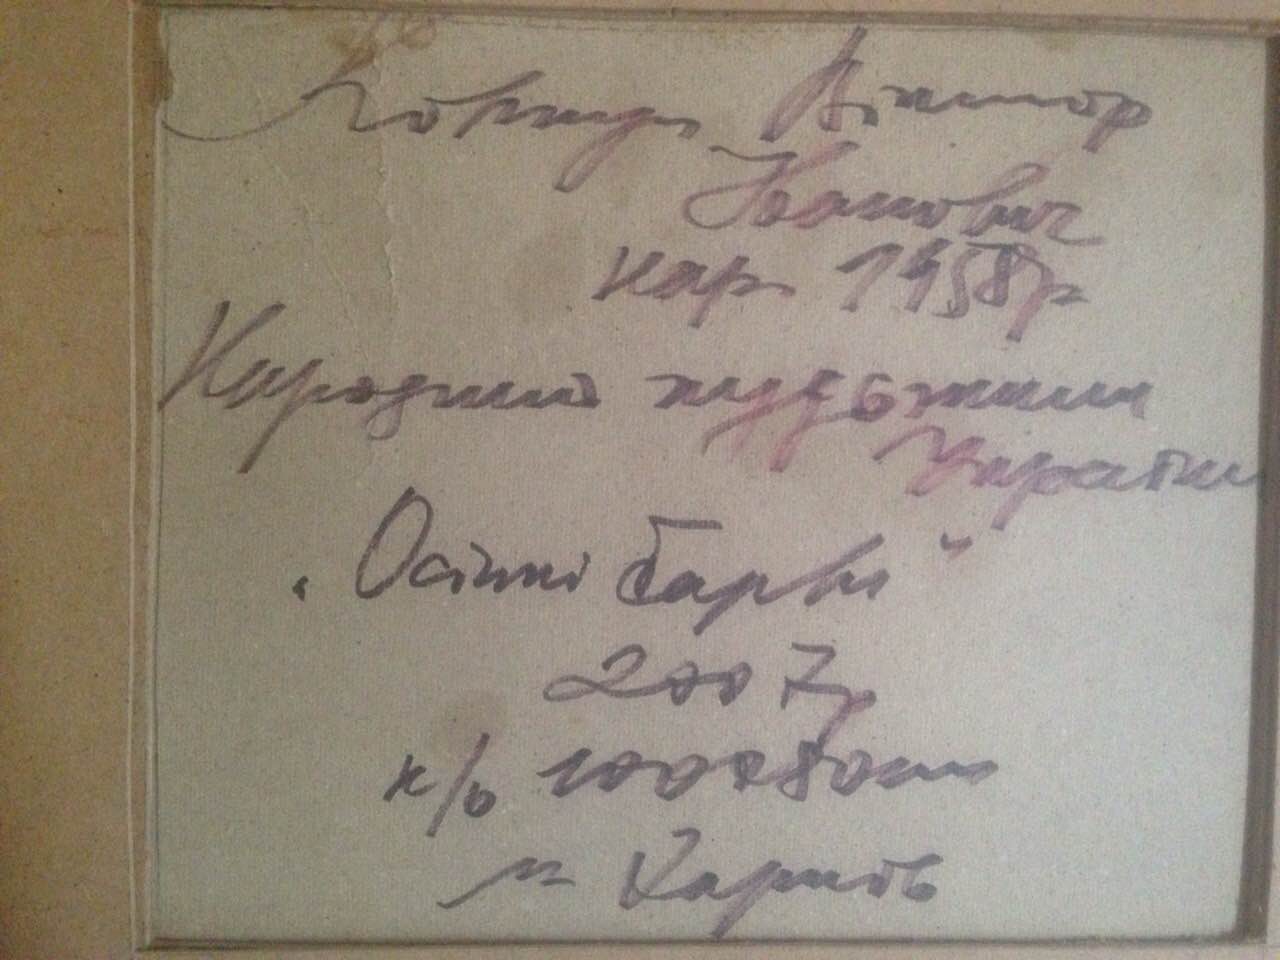 Ковтун Віктор
Іванович
нар. 1958р
Народний художник
України
"Осінні барви"
2007р
к/о 100х80см
м Харків